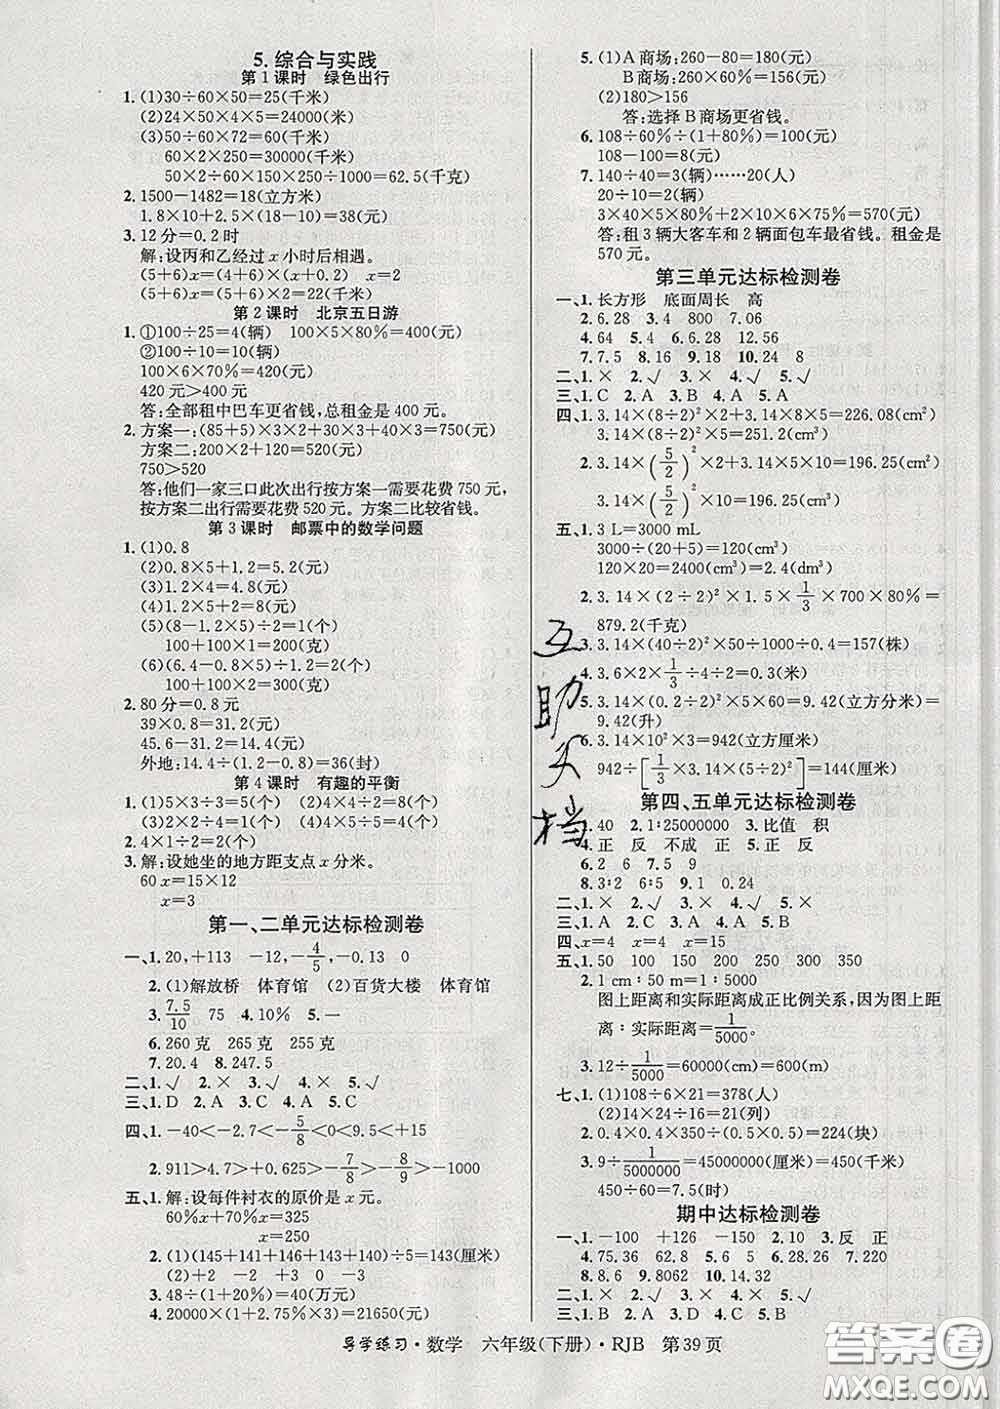 5. 综合与实践
第1课时　绿色出行
1. (1)30÷60×50=25(千米)
(2)24×50×4×5=24000(米)
(3)50×60×72÷60×60=60(千米)
60×2×250=30000(千米)
50×2÷60×150×250÷1000=62.5(千克)
2. 1500-1482=18(立方米)
1.8×10+2.5×(18-10)=38(元)
3. 12分=0.2时
解:设丙和乙经过x小时后相遇。
(5+6)x=(4+6)×(x+0.2)　x=2
(5+6)×2=22(千米)
第2课时　北京五日游
1. ①100÷25=4(辆)　100×5×80%=400(元)
②100÷10=10(辆)
100×6×70%=420(元)
420元>400元
答:全部租中巴车更省钱,总租金是400元。
2. 方案一:(85+5)×3×2+30×3+40×3=750(元)
方案二:200×2+120=520(元)
750>520
答:他们一家三口此次出行按方案一需要花费750元,
按方案二出行需要花费520元。方案二比较省钱。
第3课时　邮票中的数学问题
1. (1)0.8
(2)0.8×5+1.2=5.2(元)
(3)1.2×4=4.8(元)
(4)1.2+0.8×10=9.2(元)
(5)(8-1.2×5)÷2=1(个)
100+100×1=200(克)
(6)(6.4-1.2×2)÷2=2(个)
100+100×2=300(克)
2. 80分=0.8元
39×0.8=31.2(元)
45.6-31.2=14.4(元)
外地:14.4÷(1.2-0.8)=36(封)
第4课时　有趣的平衡
1. (1)5×3÷3=5(个)　(2)4×4÷2=8(个)
(3)2×4÷4=2(个)　(4)4×5÷4=5(个)
2. 4×1÷2=2(个)
3. 解:设她坐的地方距支点x分米。
60x=15×12
x=3
第一、二单元达标检测卷
一、1. 20,+113　-12,-4/5,-0.13　0
2. (1)解放桥　体育馆　(2)百货大楼　体育馆
3. 7.5/10　75　4. 10%　5. 一
6. 260克　265克　255克
7. 20.4　8. 247.5
二、1. √　2. ×　3. ×　4. ×　5. √
三、1. D　2. A　3. C　4. A　5. C
四、1. -40<-2.7<-5/8<0<9.5<+15
2. 911>4.7>+0.63>-7/8>-8/9>-1000
五、1. 解:设每件衬衣的原价是x元。
60%x+70%x=325
x=250
2. (1)(145+141+146+143+140)÷5=143(厘米)
(2)+2　-2　+3　0　-3
3. 48÷(1+20%)=40(万元)
4. 20000×(1+2.75%×3)=21650(元)
5. (1)A商场:260-80=180(元)
B商场:260×60%=156(元)
(2)180>156
答:选择B商场更省钱。
6. 108÷60%÷(1+80%)=100(元)
108-100=8(元)
7. 140÷40=3(辆)……20(人)
20÷10=2(辆)
3×40×5×80%+2×10×6×75%=570(元)
答:租3辆大客车和2辆面包车最省钱。租金是
570元。
第三单元达标检测卷
一、1. 长方形　底面周长　高
2. 6.28　3. 4　800　7.06
4. 64　5. 4　6. 6.28　12.56
7. 7.5　8. 16　9. 18　10. 24　8
二、1. ×　2. √　3. ×　4. √　5. √
三、1. C　2. A　3. B　4. A　5. A
四、1. 3.14×(8÷2)²×2+3.14×8×5=226.08(cm²)
3.14×(8÷2)²×5=251.2(cm³)
2. 3.14×(5/2)²×2+3.14×5×10=196.25(cm²)
3.14×(5/2)²×10=196.25(cm³)
五、1. 3 L=3000 mL
3000÷(20+5)=120(cm³)
120×20=2400(cm³)=2.4(dm³)
2. 3.14×(2÷2)²×1.5×1/3×700×80%=
879.2(千克)
3. 3.14×(40÷2)²×50÷1000÷0.4=157(株)
4. 3.6×2×1/3÷4÷2=0.3(米)
5. 3.14×(0.2÷2)²×5×60=9.42(立方分米)=
9.42(升)
6. 3.14×10²×3=942(立方厘米)
942÷[1/3×3.14×(5÷2)²]=144(厘米)
第四、五单元达标检测卷
一、1. 40　2. 1∶25000000　3. 比值　积
4. 正　反　不成　正　5. 正　反
5. 2　6　2　6. 7.5　7. 9
8. 3∶2　6∶5　9. 1　0.24
二、1. ×　2. √　3. ×　4. √　5. ×
三、1. A　2. C　3. A　4. A　5. B
四、x=4　x=4　x=15
五、1. 50　100　150　200　250　300　350
2. 1 cm∶50 m=1∶5000
图上距离和实际距离成正比例关系,因为图上距
离∶实际距离=1/5000。
3. 12÷1/5000=60000(cm)=600(m)
七、1. (1)108÷6×21=378(人)
(2)14×24÷16=21(列)
2. 0.4×0.4×350÷(0.5×0.5)=224(块)
3. 9÷1/5000000=45000000(厘米)=450(千米)
450÷60=7.5(时)
期中达标检测卷
一、1. -100　+126　-150　2. 10　3. 反　正
4. 75.36　62.8　5. 6　5　6. 28.26　7. 220
8. 8.6　9. 8062　10. 14.32
三、1. B　2. A　3. D　4. A　5. B
互助文档
导学练习·数学　六年级(下册)·RJB　第39页
答案圈
MXQE.COM